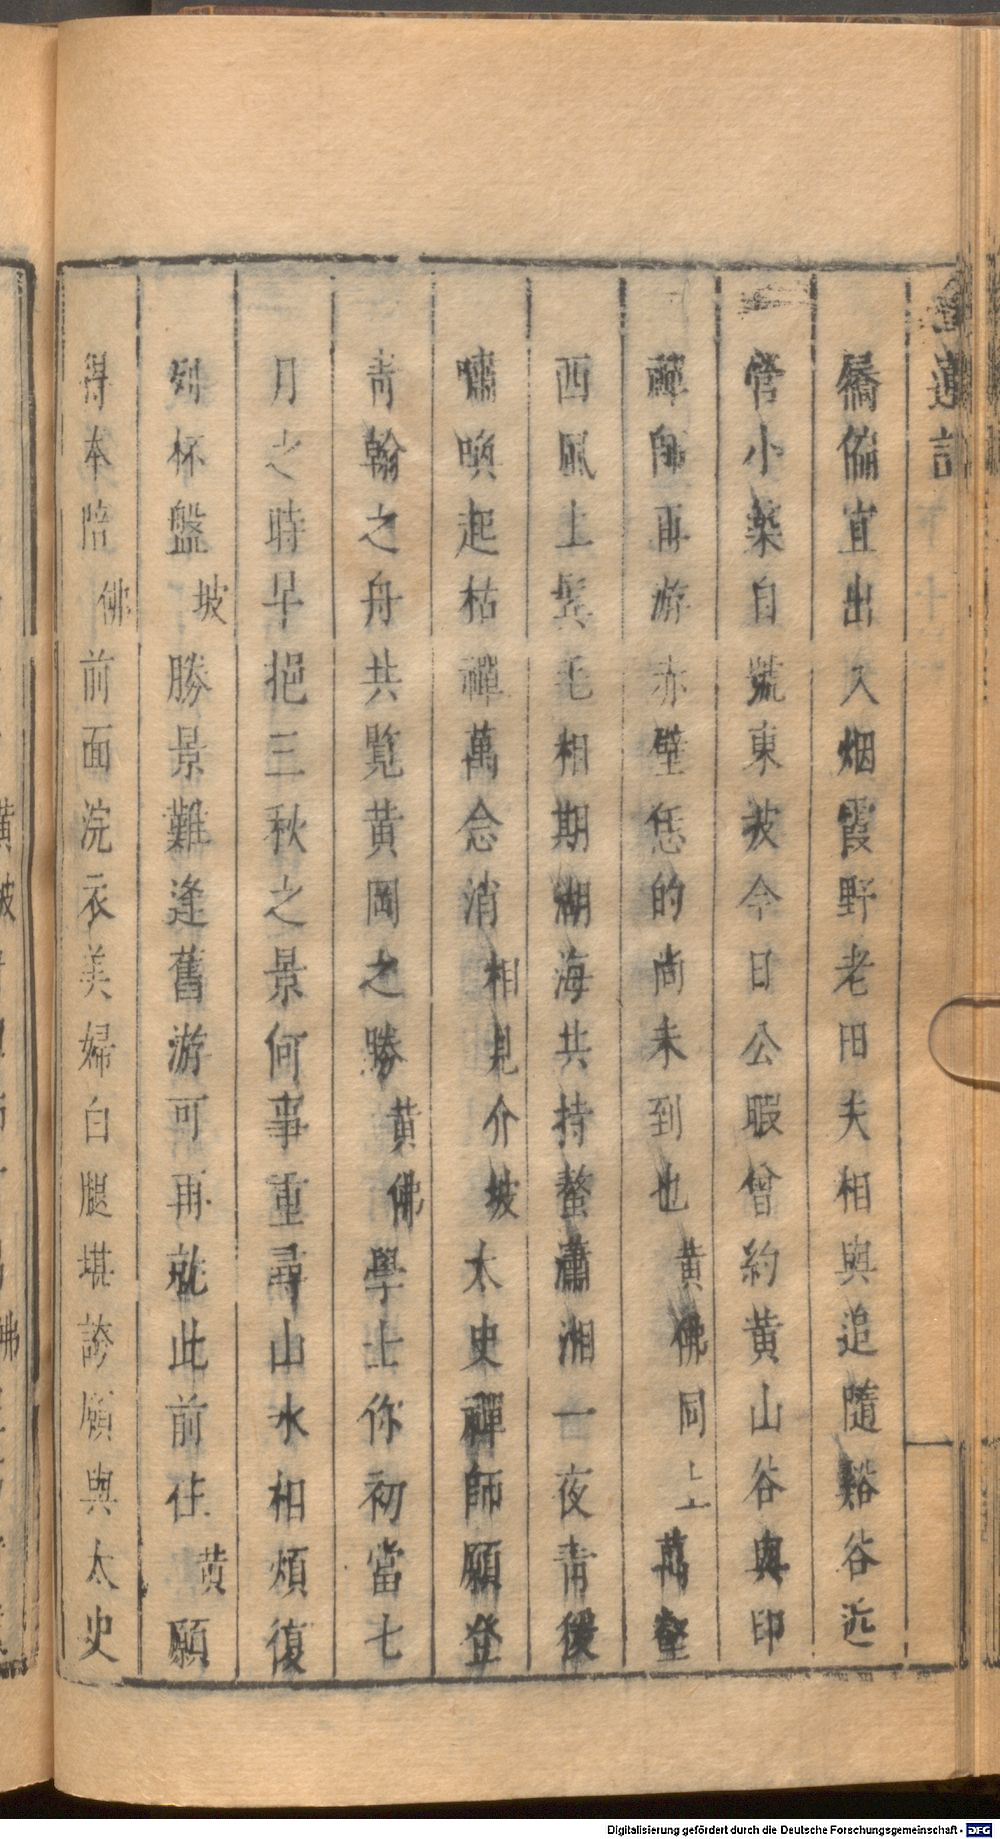 蓮記
僑倆宜出入烟霞野老田夫相與追隨谿谷近
營小築自號東坡今日公暇曾約黃山谷與印
禪師再游赤壁恁的尚未到也黃佛同上萬壑
西風上鬂毛相期湖海共持螯瀟湘一夜青猨
嘯喚起枯禪萬念消相見介坡太史禪師願登
青翰之舟共覧黃岡之勝黃佛學士你初當七
月之時早挹三秋之景何事重尋山水相煩復
列杯盤坡勝景難逢舊游可再就此前往黃願
得本陪佛前面浣衣美婦白腿堪誇願與太史
Digitalisierung gefördert durch die Deutsche Forschungsgemeinschaft - DFG